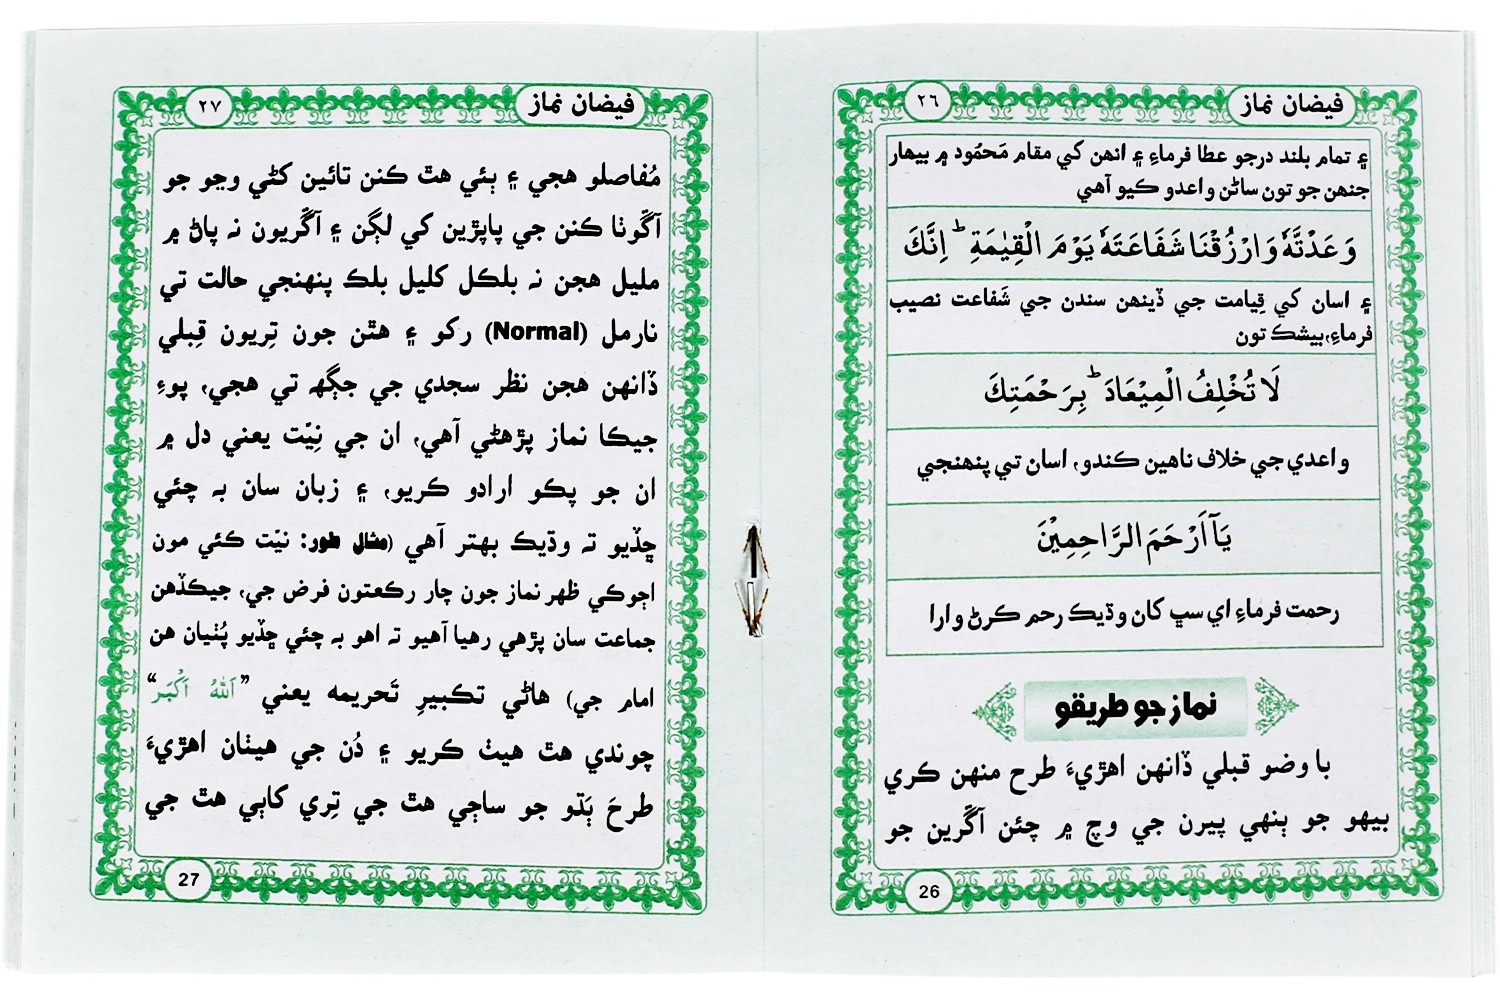 فيضان نماز
٢٦
۽ تمام بلند درجو عطا فرماءِ ۽ انهن کي مقام مَحمُود ۾ بيهار
جنهن جو تون ساڻن واعدو ڪيو آهي
وَعَدْتَّهٗ وَارْزُقْنَا شَفَاعَتَهٗ يَوْمَ الْقِيٰمَةِ ؕ اِنَّكَ
۽ اسان کي قِيامت جي ڏينهن سندن جي شَفاعت نصيب
فرماءِ، بيشڪ تون
لَا تُخْلِفُ الْمِيْعَادَ ؕ بِرَحْمَتِكَ
واعدي جي خلاف ناهين ڪندو، اسان تي پنهنجي
يَآ اَرْحَمَ الرَّاحِمِيْنَ
رحمت فرماءِ اي سڀ کان وڌيڪ رحم ڪرڻ وارا
نماز جو طريقو
با وضو قبلي ڏانهن اهڙيءَ طرح منهن ڪري
بيهو جو ٻنهي پيرن جي وچ ۾ چئن آڱرين جو
26
فيضان نماز
٢٧
مُفاصلو هجي ۽ ٻئي هٿ ڪنن تائين کڻي وڃو جو
آڱوٺا ڪنن جي پاپڙين کي لڳن ۽ آڱريون نہ پاڻ ۾
مليل هجن نہ بلڪل کليل بلڪ پنهنجي حالت تي
نارمل (Normal) رکو ۽ هٿن جون تِريون قِبلي
ڏانهن هجن نظر سجدي جي جڳهہ تي هجي، پوءِ
جيڪا نماز پڙهڻي آهي، ان جي نِيّت يعني دل ۾
ان جو پڪو ارادو ڪريو، ۽ زبان سان بہ چئي
ڇڏيو تہ وڌيڪ بهتر آهي (مثال طور: نيّت ڪئي مون
اڄوڪي ظهر نماز جون چار رڪعتون فرض جي، جيڪڏهن
جماعت سان پڙهي رهيا آهيو تہ اهو بہ چئي ڇڏيو پُٺيان هن
امام جي) هاڻي تڪبيرِ تَحريمه يعني ”اَللّٰهُ اَكْبَر“
چوندي هٿ هيٺ ڪريو ۽ دُن جي هيٺان اهڙيءَ
طرحَ ٻَڌو جو ساڄي هٿ جي تِري کاٻي هٿ جي
27